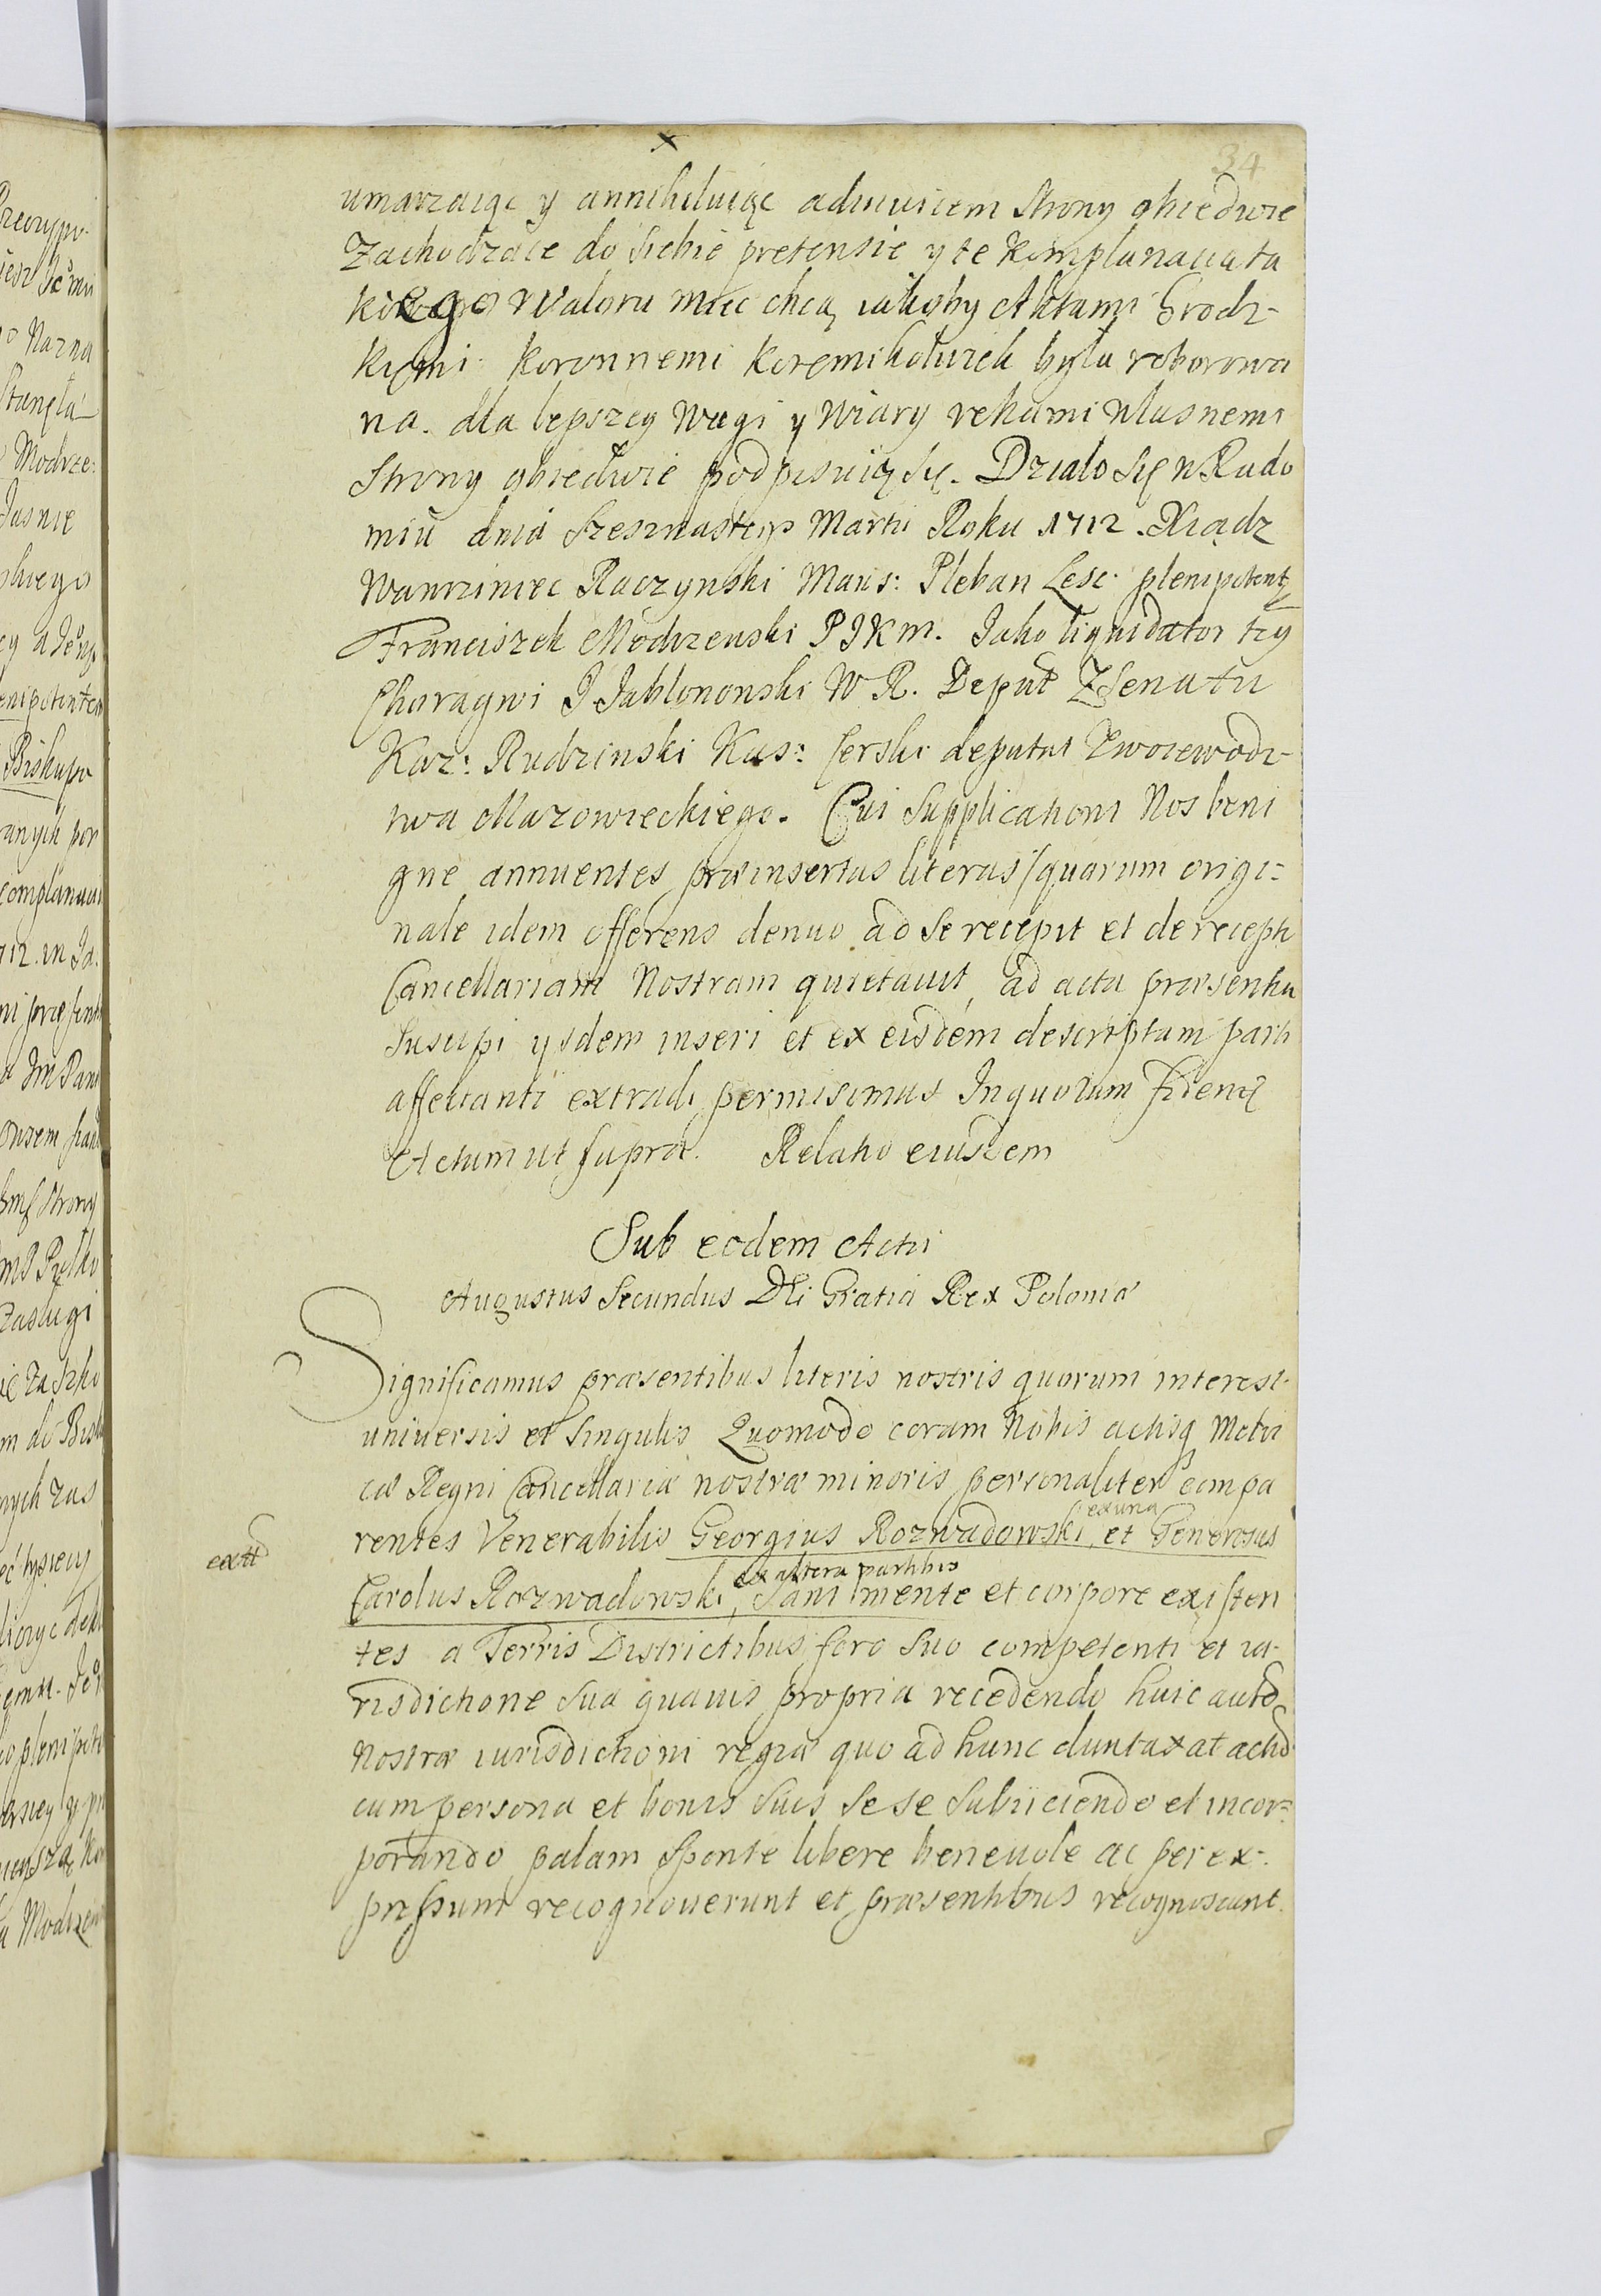 34
umarzaiąc y annihiluiąc adinuicem Strony obiedwie
Zachodzące do siebie pretensie y te Komplanacya ta
kiego Waloru miec chcą iakoby Aktami Grodz-
kiemi Koronnemi Koremikolwiek była roborowa
na. dla lepszey Wagi y Wiary rekami Własnemi
Strony obiedwie podpisuią się. Działo się w Rado
miu dnia szesnastego Martii Roku 1712. Xiądz
Wawrziniec Raczynski Mans: Pleban Lesc: plenipotent
Franciszek Modrzewski P J K m. Jako liquidator trzy
Choragwi J Jabłonowski W R. Deput Z Senatu
Kaz: Rudzinski Kas: Cerski deputat Zwoiewodz-
twa Mazowieckiego. Cui Supplicationi Nos beni
gne annuentes præinsertas literas /quarum origi-
nale idem offerens denuo ad se recepit et de recepto
Cancellariam Nostram quietauit, ad acta præsentia
Suscipi ysdem inseri et ex eisdem descriptam parti
affectanti extradi permisimus In quorum Fidem
Actum ut supra. Relatio eiusdem
Sub eodem Actu
Augustus Secundus Dei Gratia Rex Poloniæ
Significamus præsentibus literis nostris quorum interest
universis et singulis Quomodo coram Nobis actisq Metri
cæ Regni Cancellariæ nostræ minoris personaliter compa
ex una
rentes Venerabilis Georgius Rozwadowski, et Generosus
extt
ex altera partibus
Carolus Rozwadowski, Sani mente et corpore existen
tes a Terris Districtibus foro suo competenti et iu-
risdictione sua quauis propria recedendo huic autd
Nostræ iurisdictioni regiæ quo ad hunc duntaxat actu
cum persona et bonis suis se se subiiciendo et incor-
porando palam sponte libere beneuole ac per ex-
pressum recognouerunt et præsentibus recognoscunt.